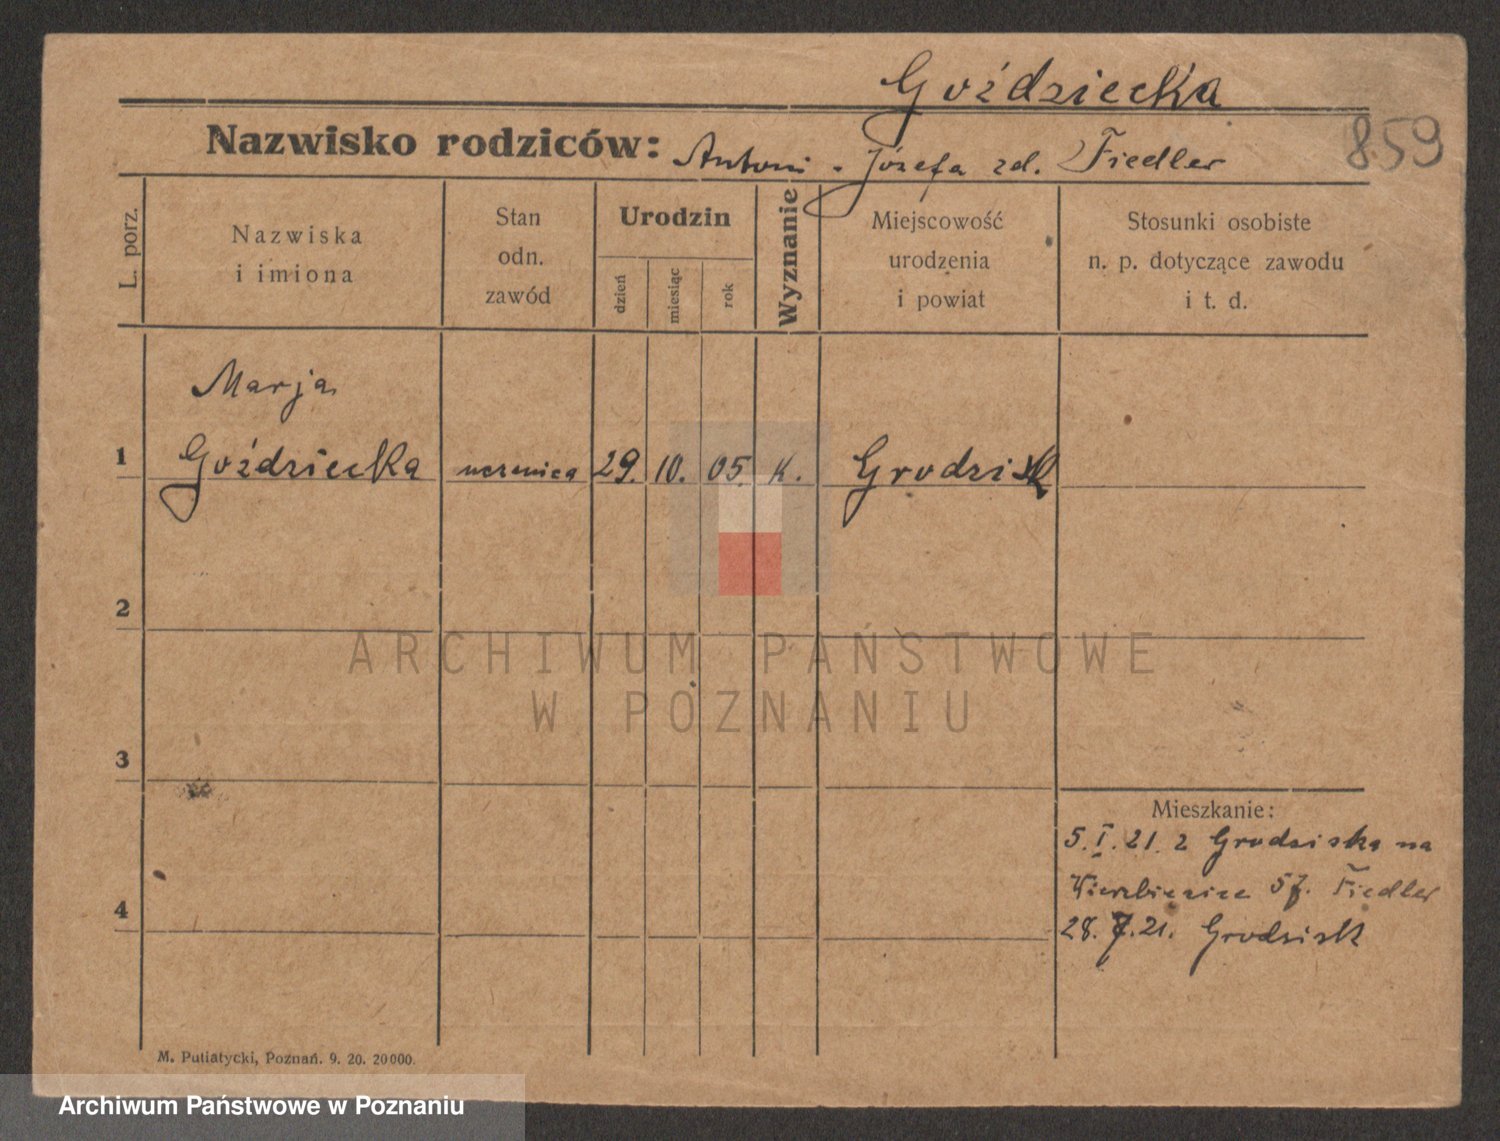 Goździecka
859
Nazwisko rodziców: Antoni - Józefa zd. Fiedler
L. porz.
Nazwiska
i imiona
Stan
odn.
zawód
Urodzin
dzień
miesiąc
rok
Wyznanie
Miejscowość
urodzenia
i powiat
Stosunki osobiste
n. p. dotyczące zawodu
i t. d.
Marja
1 Goździecka uczenica 29. 10. 05. K. Grodzisk
2
ARCHIWUM PAŃSTWOWE
W POZNANIU
3
Mieszkanie:
5. I. 21. z Grodziska na
Wierzbiecice 57. Fiedler
4
28. 7. 21. Grodzisk
M. Putiatycki, Poznań. 9. 20. 20000.
Archiwum Państwowe w Poznaniu